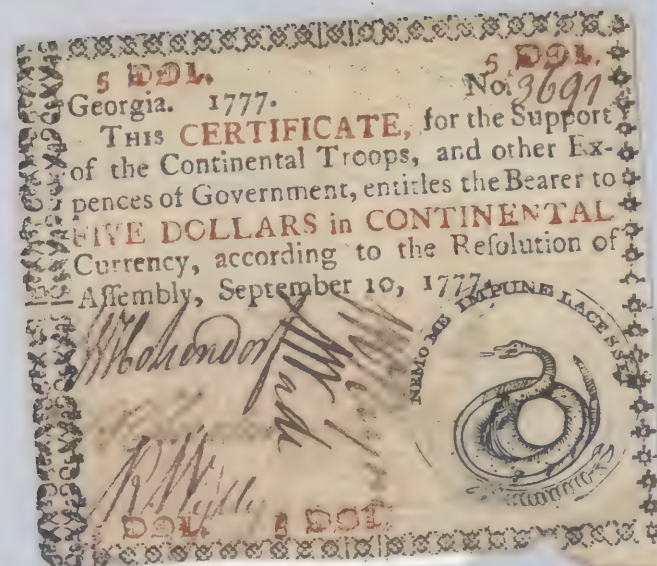 5 DOL. 5 DOL.
Georgia. 1777. No. 3691
THIS CERTIFICATE, for the Support
of the Continental Troops, and other Ex-
pences of Government, entitles the Bearer to
FIVE DOLLARS in CONTINENTAL
Currency, according to the Reſolution of
Aſſembly, September 10, 1777.
NEMO ME IMPUNE LACESSET
5 DOL. 5 DOL.